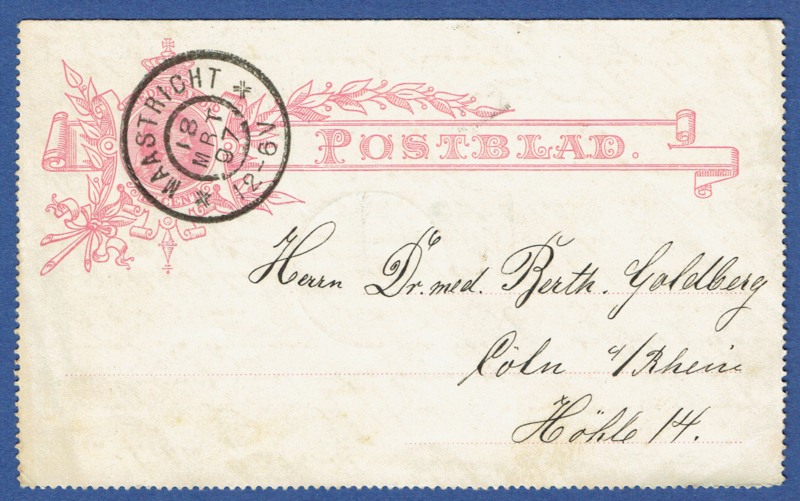 MAASTRICHT
18
MRT
97
12-6V
CENT
POSTBLAD.
Herrn Dr. med. Berth. Goldberg
Cöln a/Rhein
Höhle 14.